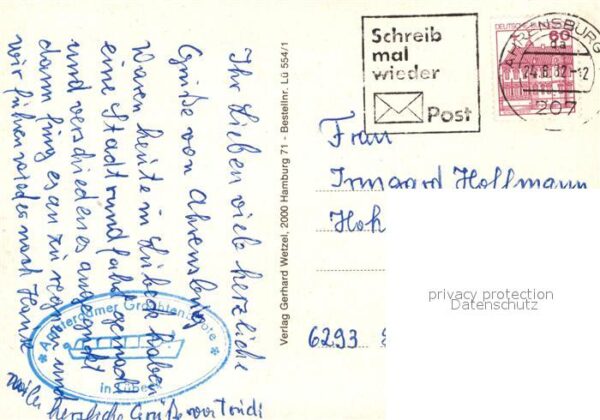 Ihr Lieben viele herzliche
Grüße von Ahrensburg
Waren heute in Lübeck haben
eine Stadtrundfahrt gemacht
und verschiedenes angeguckt
dann fing es an zu regnen und
wir fuhren wieder nach Hause
viele herzliche Grüße von Trudi
Amsterdamer Grachtenboote
in Lübeck
Verlag Gerhard Wetzel, 2000 Hamburg 71 - Bestellnr. Lü 554/1
Schreib
mal
wieder
Post
DEUTSCHE
60
AHRENSBURG
da
24.8.82-12
207
Frau
Irmgard Hoffmann
Hoh
6293
privacy protection
Datenschutz